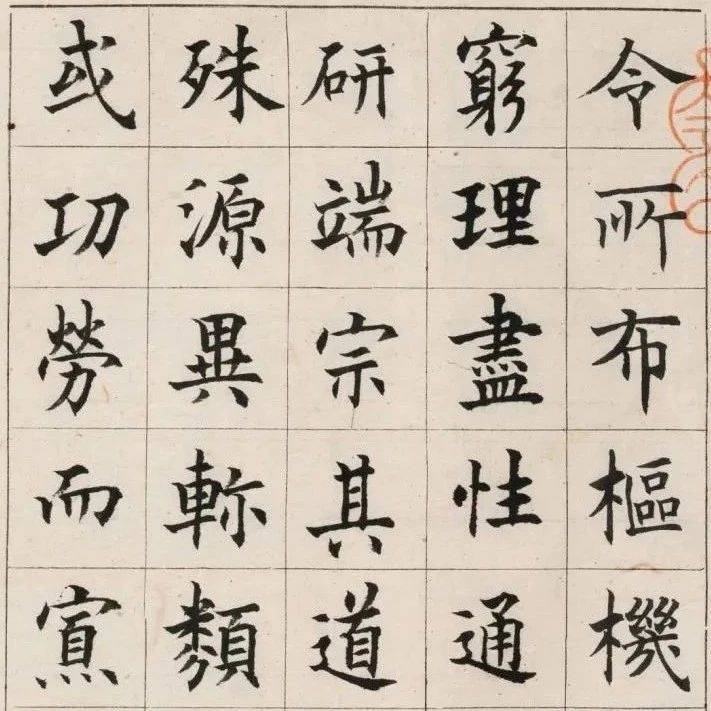 令所布樞機
窮理盡性通
研端宗其道
殊源異軫類
或功勞而寡